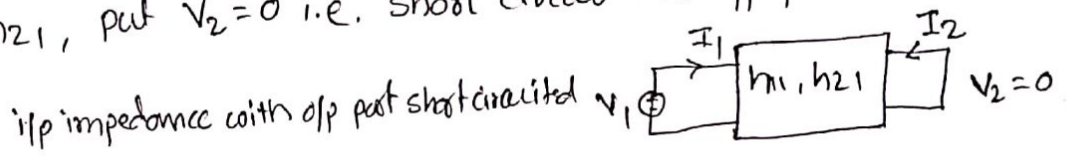 h21, put V2=0 i.e. short
i/p impedance with o/p port short circuited
V1
I1
h11, h21
I2
V2=0